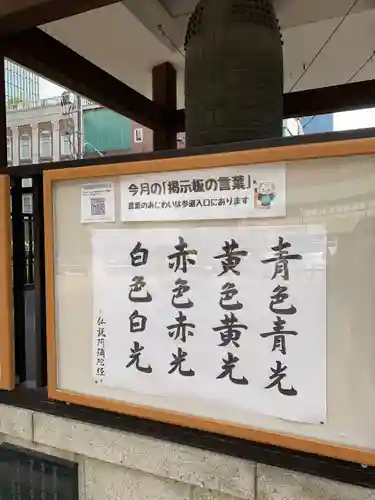 今月の「掲示板の言葉」
言葉のあじわいは参道入口にあります
青色青光
黄色黄光
赤色赤光
白色白光
仏説阿彌陀経